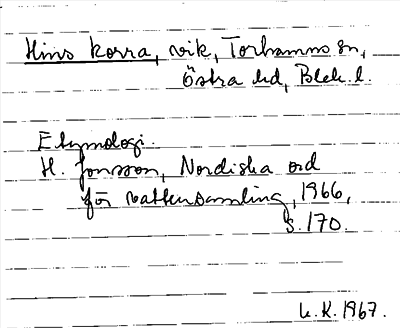 Hins korra, vik, Torhamns sn,
Östra hd, Blek. l.
Etymologi.
H. Jonsson, Nordiska ord
för vattensamling, 1966,
s. 170.
U.K. 1967.